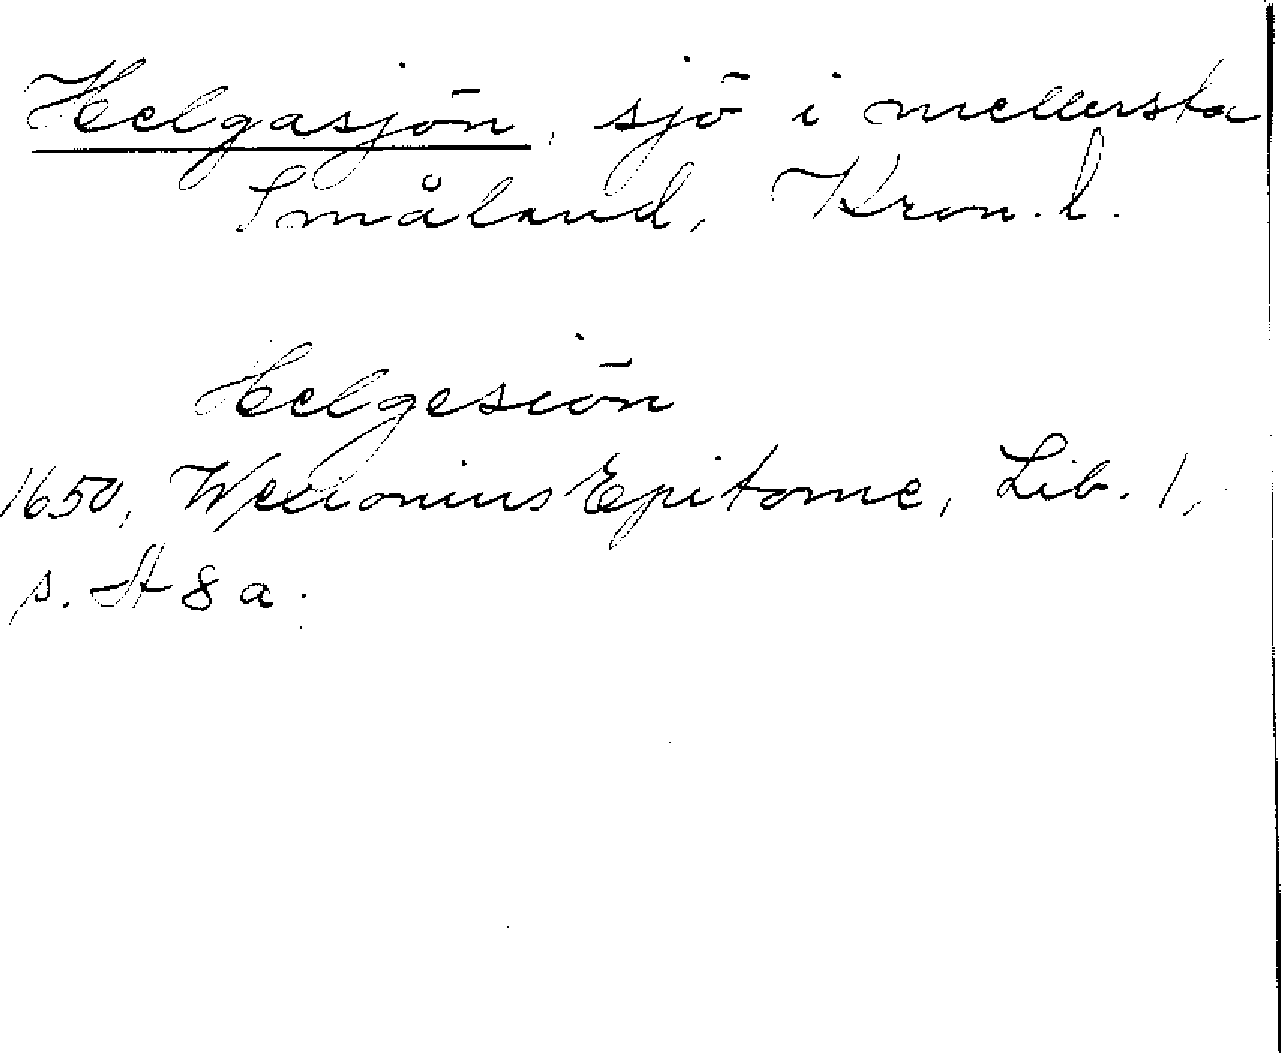 Helgasjön, sjö i mellersta
Småland, Kron. l.
Helgesiön
1650, Wexionius Epitome, Lib. 1,
s. A 8 a.